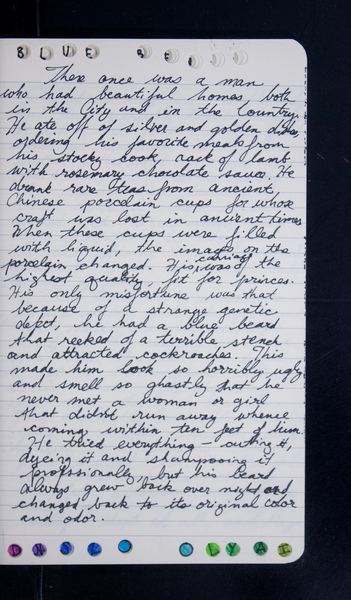 BLUE BE
There once was a man
who had beautiful homes both
in the City and in the Country.
He ate off of silver and golden dishes,
ordering his favorite meals from
his stocky cook, rack of lamb
with rosemary chocolate sauce. He
drank rare teas from ancient
Chinese porcelain cups for whose
craft was lost in ancient times.
When these cups were filled
with liquid, the images on the
porcelain changed. His carriage was of the
highest quality, fit for princes.
His only misfortune was that
because of a strange genetic
defect, he had a blue beard
that reeked of a terrible stench
and attracted cockroaches. This
made him look so horribly ugly
and smell so ghastly that he
never met a woman or girl
that didn't run away whence
coming within ten feet of him.
He tried everything — cutting it,
dyeing it and shampooing it
professionally, but his beard
always grew back over night and
changed back to its original color
and odor.